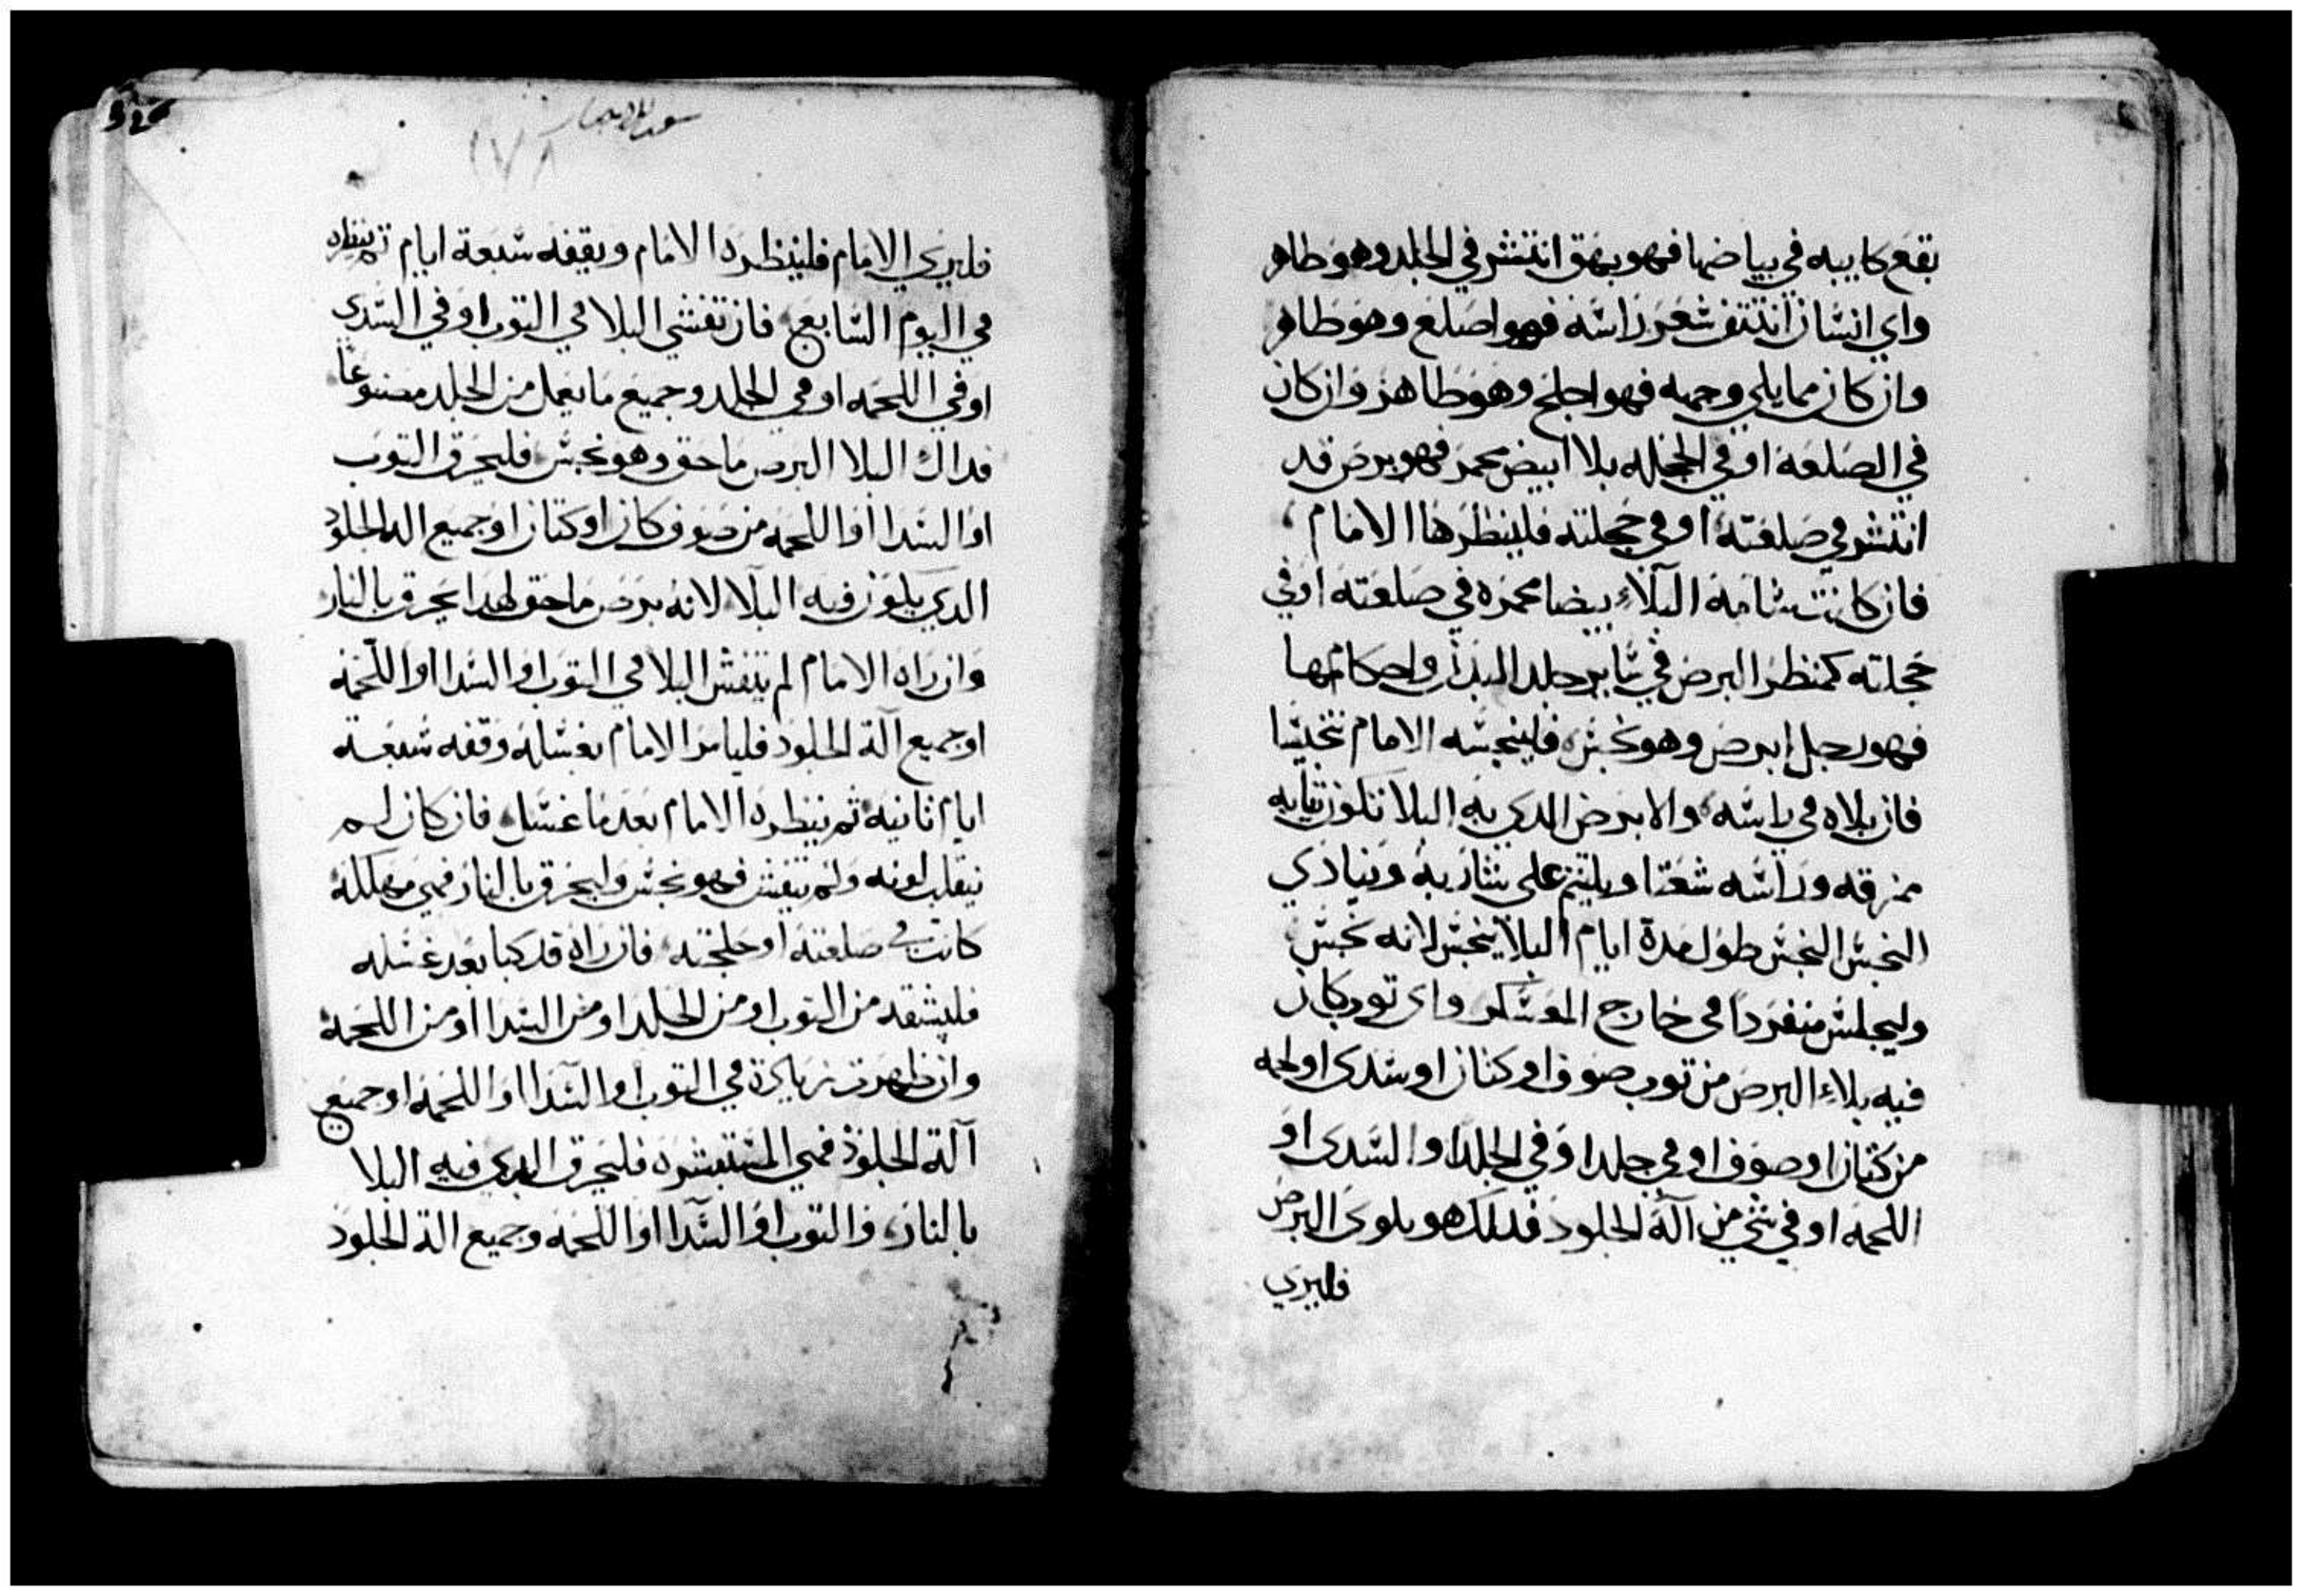 بقع كابيه في بياضها فهو بهق انتشر في الجلد وهو طاهر
واي انسان انتتف شعر راسه فهو اصلع وهو طاهر
وان كان مما يلي وجهه فهو اجلح وهو طاهر وان كان
في الصلعه او في الجحله بلاا ابيض محمر فهو برص قد
انتشر في صلعته او في جحلته فلينظرها الامام
فان كانت شامة البلاء بيضا محمره في صلعته او في
جحلته كمنظر البرص في ساير جلد البدن واحكامها
فهو رجل ابرص وهو نجس فلينجسه الامام تنجيسا
فان بلاه في راسه والابرص الدي به البلا تكون تيابه
ممزقه وراسه شعتا ويلتم على شاربه وينادي
النجس النجس طول مدة ايام البلا ينجس لانه نجس
وليجلس منفردا في خارج المعسكر واي توب كان
فيه بلاء البرص من توب صوف او كتان او سدى او لحمه
من كتان او صوف او في جلد او في الجلد او السدى او
اللحمه او في شي من آلة الجلود فدلك هو بلوى البرص
فليري
326
١٧٨
فليري الامام فلينظره الامام ويقفه سبعة ايام تم ينظره
في اليوم السابع فان تفشي البلا في التوب او في السدي
او في اللحمه او في الجلد وجميع ما يعمل من الجلد مصنوعا
فداك البلا البرص ماحق وهو نجس فليحرق التوب
او السدا او اللحمه من صوف كان او كتان او جميع الة الجلود
الدي يكون فيه البلا لانه برص ماحق لهدا يحرق بالنار
وان راه الامام لم يتفش البلا في التوب او السدا او اللحمه
او جميع آلة الجلود فليامر الامام بغسله وقفه سبعة
ايام ثانيه ثم ينظره الامام بعد ما غسل فان كان لم
ينقلب لونه ولم يتفش فهو نجس وليحرق بالنار فهي مهلكه
كانت في صلعته او جلحته فان راه قد كبا بعد غسله
فليشقه من التوب او من الجلد او من السدا او من اللحمه
وان ظهرت زيادة في التوب او السدا او اللحمه او جميع
آلة الجلود فهي المنتشره فليحرق الدي فيه البلا
بالنار والتوب او السدا او اللحمه وجميع الة الجلود